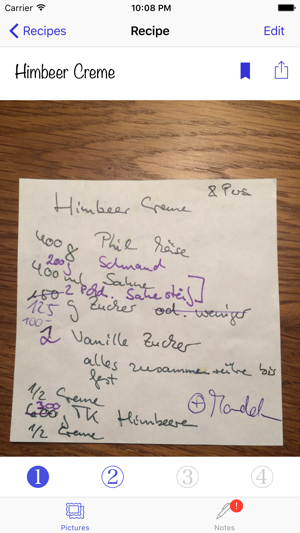 Carrier 10:08 PM
Recipes Recipe Edit
Himbeer Creme
8 Pers
Himbeer Creme
400 g Phil. Käse
200g Schmand
400 ml Sahne
150 2 Päd. Sahnesteif
125 g Zucker od. weniger
100-
2 Vanille Zucker
alles zusammen rühre bis
fest
1/2 Creme
300 TK Himbeere
1/2 Creme
+ Mandel
1 2 3 4
!
Pictures Notes